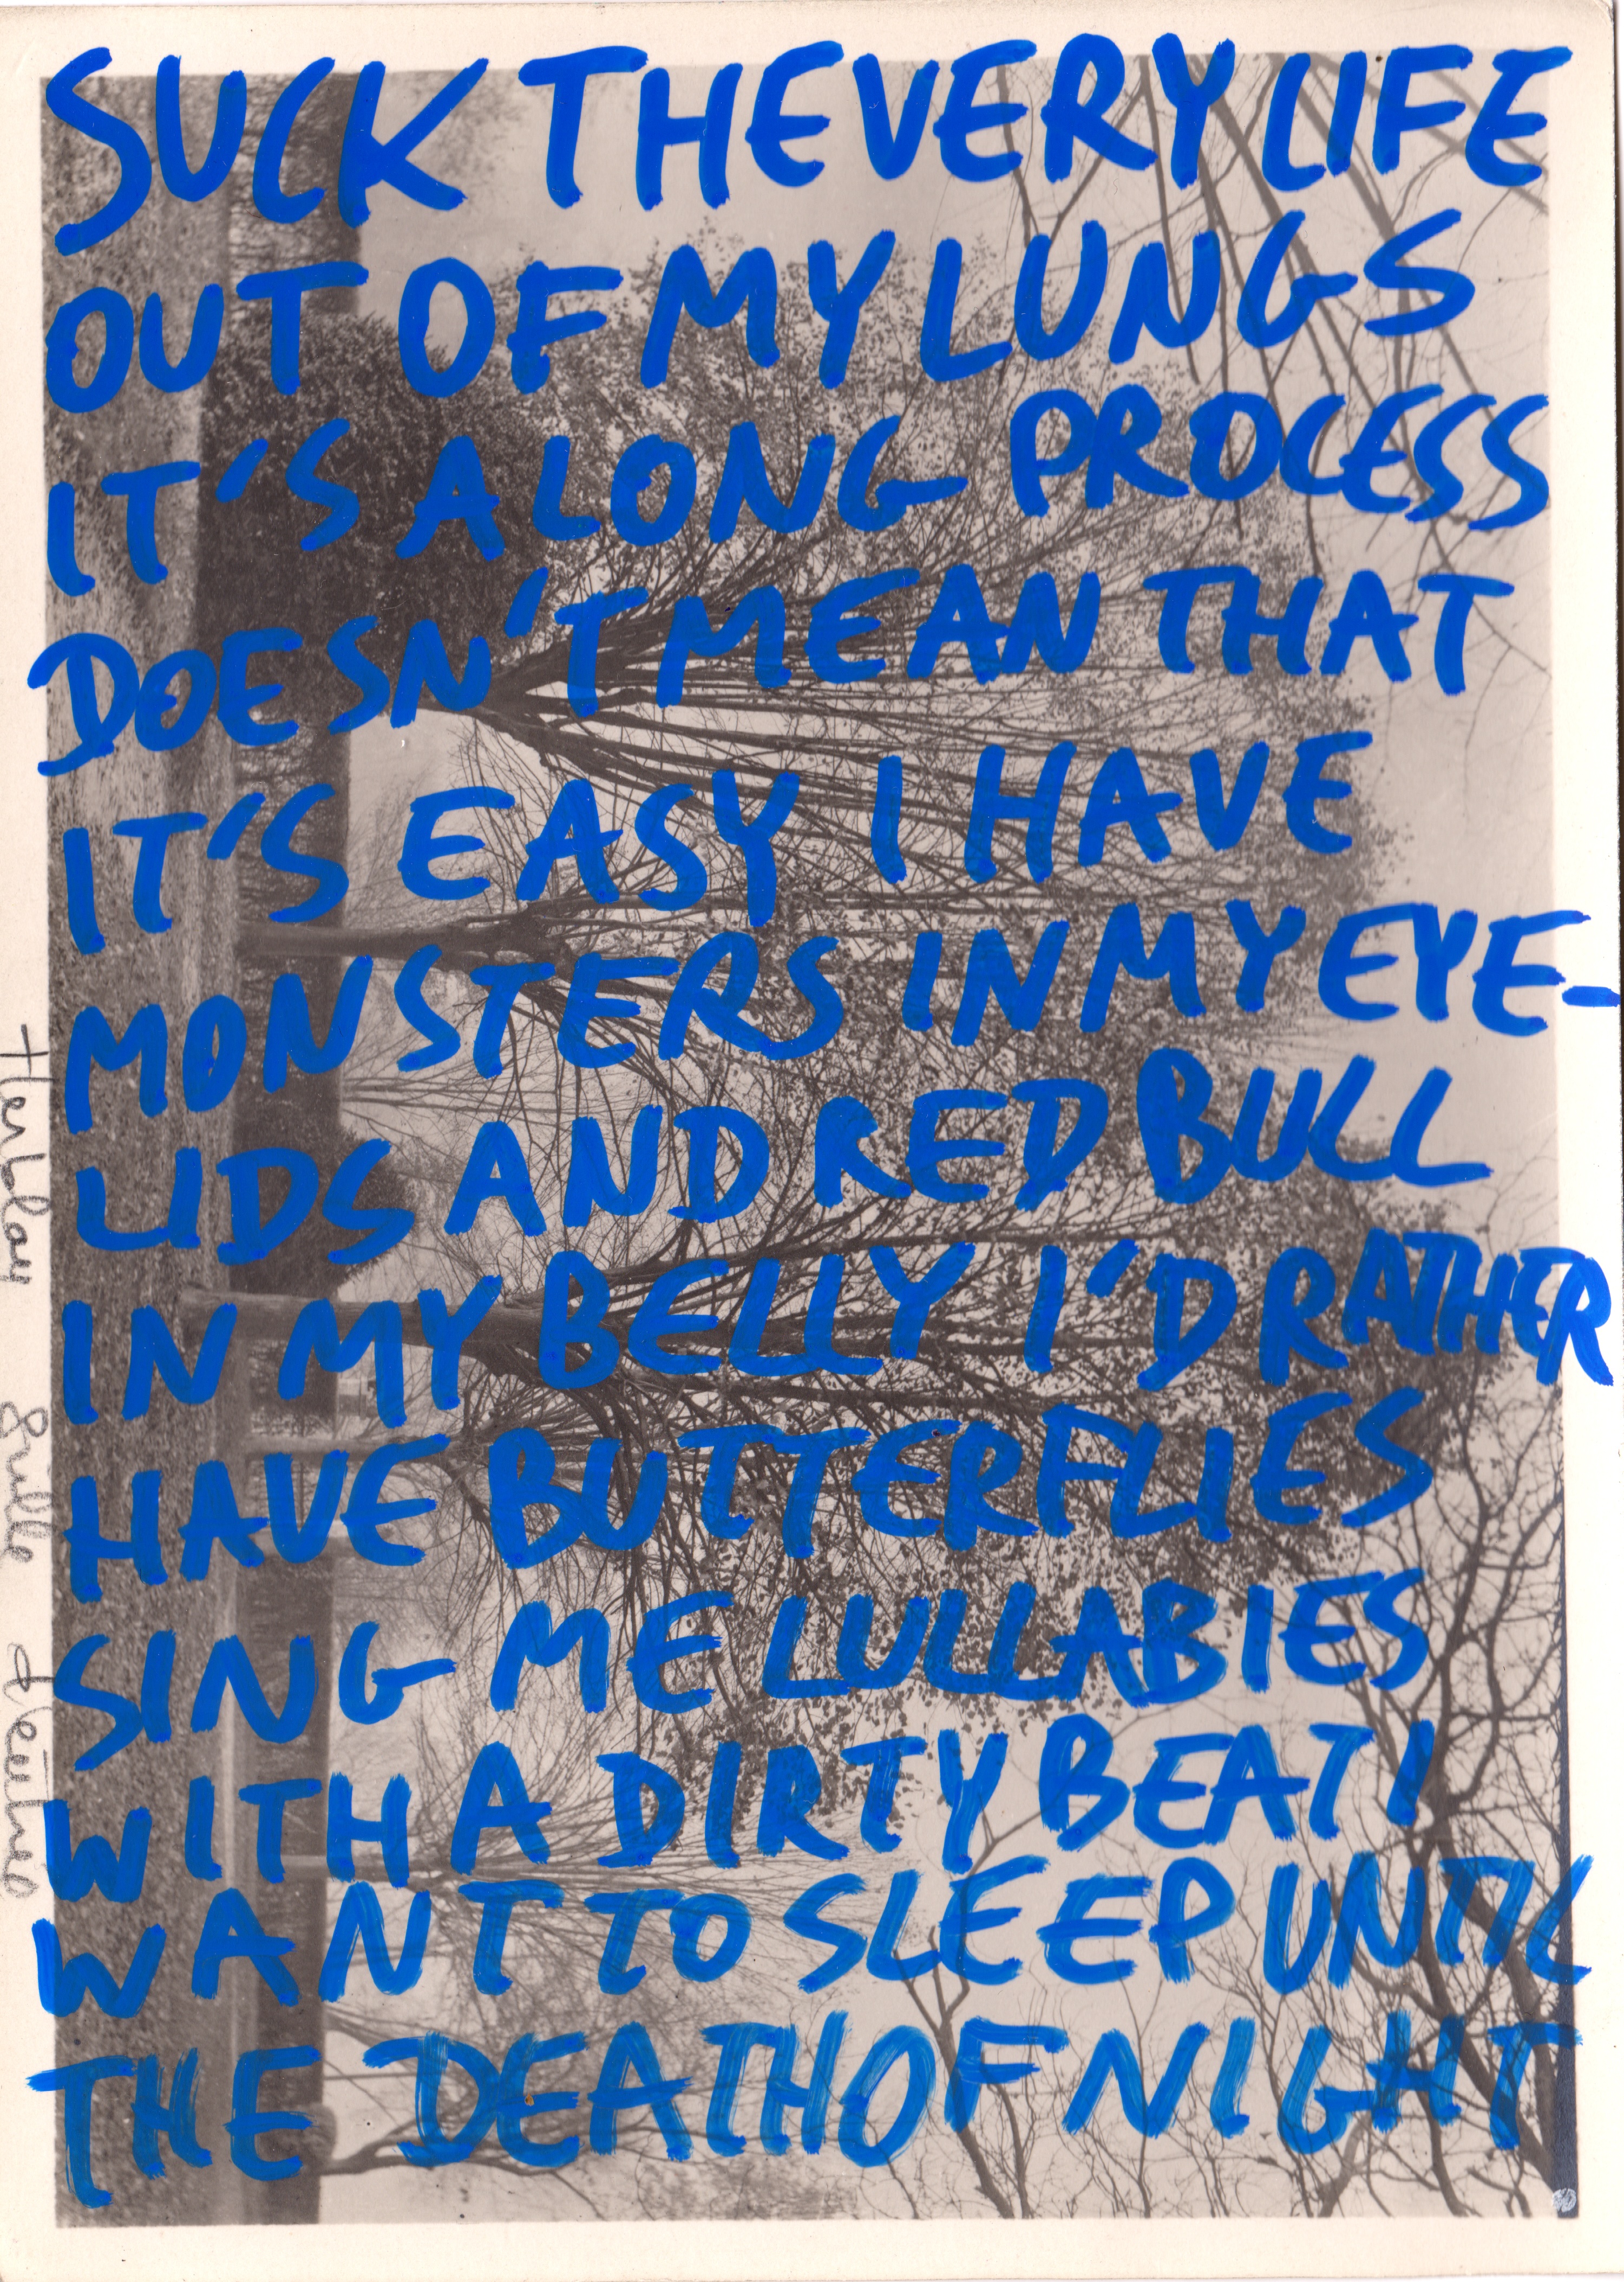 SUCK THE VERY LIFE
OUT OF MY LUNGS
IT'S A LONG PROCESS
DOESN'T MEAN THAT
IT'S EASY I HAVE
MONSTERS IN MY EYE-
LIDS AND RED BULL
IN MY BELLY I'D RATHER
HAVE BUTTERFLIES
SING ME LULLABIES
WITH A DIRTY BEAT I
WANT TO SLEEP UNTIL
THE DEATH OF NIGHT